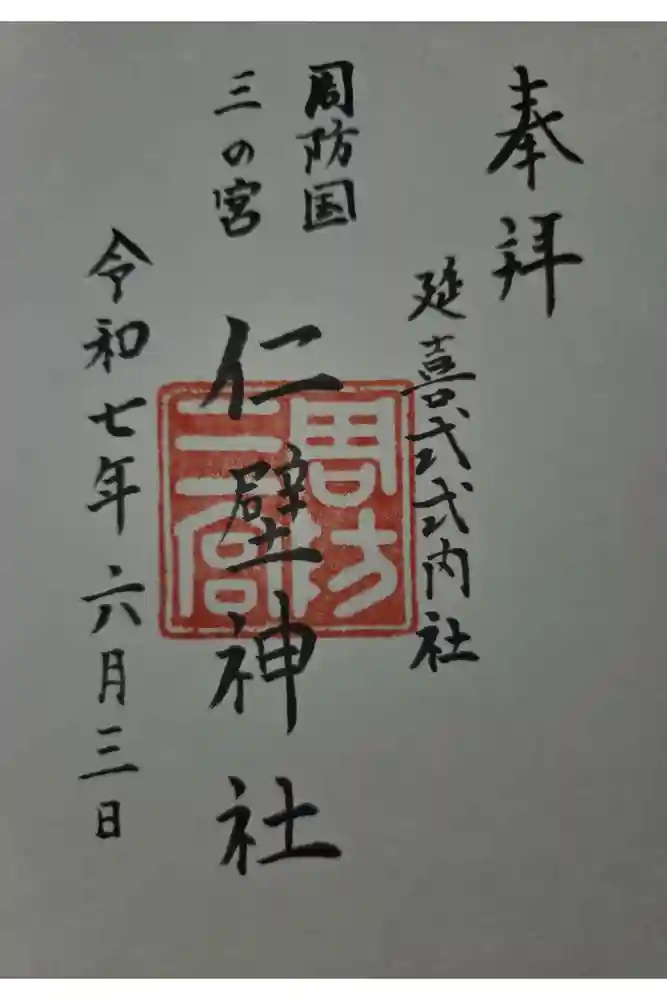 奉拝
延喜式式内社
周防国
三の宮
仁壁神社
周防
三宮
令和七年六月三日